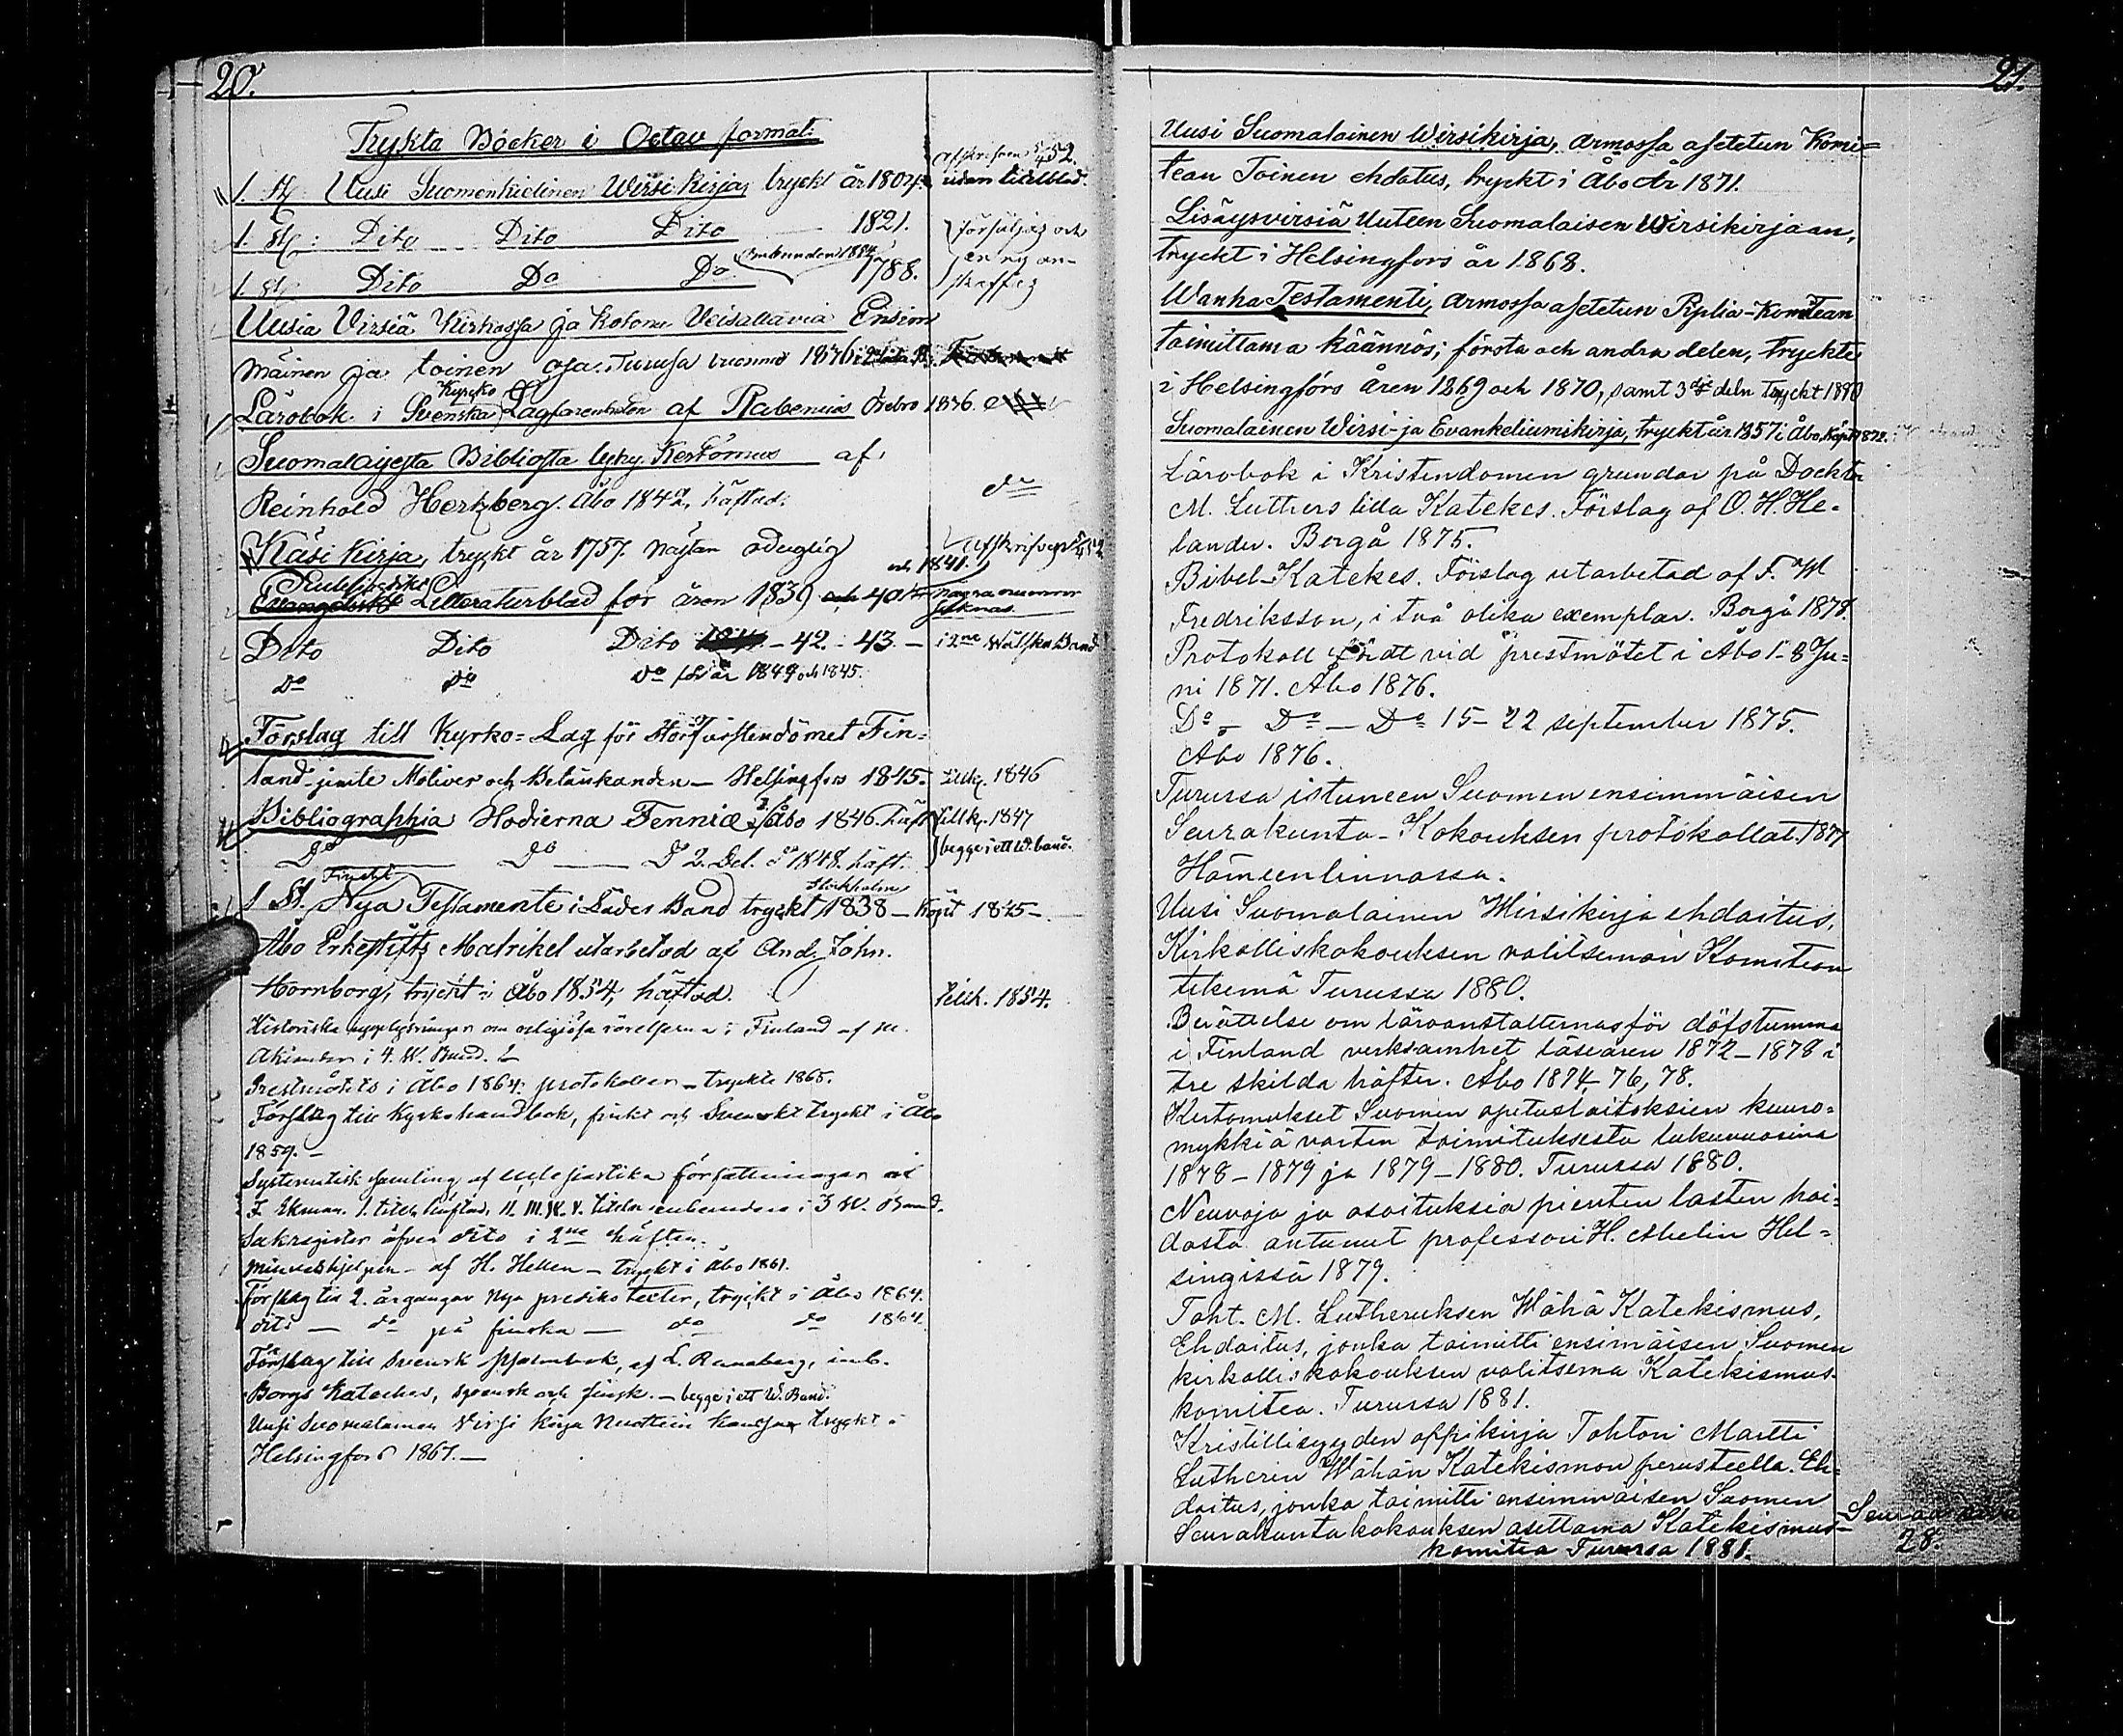 20.
Tryckta Böcker i Octav format:
1. St. Uusi Suomenkielinen Wirsi Kirja, tryckt år 1804. utan titelblad.
Afskrifven 5/4 52.
1. St: Dito Dito Dito 1821.
försäljas och
Inbunden 1884
1. St. Dito Do Do 1788.
en ny anskaffas
Uusia Virsiä Kirkossa ja kotona Veisattavia Ensim
mäinen ja toinen osa. Turusa vuonna 1836
Lärobok i Svenska Kyrko Lagfarenheten af Rabenius Örebro 1836.
Suomalaisesta Bibliasta lyhy. Kertomus af
Reinhold Hertzberg. Åbo 1842, häftad. do
Käsi Kirja, tryckt år 1757. nästan oduglig
Afskrifven 5/4 52
och 1841.
Evangeliskt Litteraturblad för åren 1839 och 40
några nummer
felknas
Dito Dito Dito 1841 - 42. - 43. - i 2ne Wälska Band
Do do do för år 1844 och 1845.
Förslag till Kyrko=Lag för Storfurstendömet Fin=
land jemte Motiver och Betänkanden - Helsingfors 1845. Tillk. 1846
Bibliographia Hodierna Fenniæ Åbo 1846. Häft Tillk. 1847
Do Do D 2. Del. do 1848. häft.
begge i ett W. band.
Finskt
Stockholm
1 St. Nya Testamente i Läder Band tryckt 1838 - Köpt 1845 -
Åbo Erkestifts Matrikel utarbetad af And. Joh.
Hornborg, tryckt i Åbo 1854, häftad. Tillk. 1854.
Historiska upplysningar om religiösa rörelserna i Finland af M.
Akiander i 4. W. Band.
Prestmötets i Åbo 1864: protokoller - tryckte 1865.
Förslag till Kyrkohandbok, finskt och Svenskt tryckt i Åbo
1859. -
Systematisk samling af ecclesiastika författningar af
F. Ekman. I. titeln häftad, II. III. IV. V. titeln inbundna i 3 W. Band.
Sakregister äfven dito i 2ne häften.
Minneshjelpen - af H. Hellen - tryckt i Åbo 1861.
Förslag till 2. årgångar nya prediko texter, tryckt i Åbo 1864.
dito - do på finska - do do 1864.
Förslag till Svensk psalmbok, af L. Runeberg, inb.
Borgå Kateches, svensk och finsk. - begge i ett W. Band.
Uusi Suomalainen Virsi Kirja Nuottein kanssa tryckt i
Helsingfors 1867. -
21.
Uusi Suomalainen Wirsikirja, Armossa asetetun Komi=
tean Toinen ehdotus, tryckt i Åbo År 1871.
Lisäysvirsiä Uuteen Suomalaisen Wirsikirjaan,
tryckt i Helsingfors år 1868.
Wanha Testamenti, Armossa asetetun Piplia-Komitean
toimittama käännös; första och andra delen, tryckte
i Helsingfors åren 1869 och 1870, samt 3dje deln tryckt 1880
Suomalainen Wirsi- ja Evankeliumikirja, tryckt år 1857 i Åbo, köpt 1872.
Lärobok i Kristendomen grundar på Doktor
M. Luthers lilla Katekes. Förslag af O. H. He-
lander. Borgå 1875.
Bibel-Katekes. Förslag utarbetad af F. W
Fredriksson, i två olika exemplar. Borgå 1878.
Protokoll fördt vid prestmötet i Åbo 1-8 Ju=
ni 1871. Åbo 1876.
Do - Do - Do 15-22 september 1875.
Åbo 1876.
Turussa istuneen Suomen ensimmäisen
Seurakunta-Kokouksen protokollat. 1877
Hämeenlinnassa.
Uusi Suomalainen Wirsikirja ehdoitus,
Kirkolliskokouksen valitseman Komitean
tekemä Turussa 1880.
Berättelse om läroanstalternas för döfstumma
i Finland verksamhet läseåren 1872-1878 i
tre skilda häften. Åbo 1874, 76, 78.
Kertomukset Suomen opetuslaitoksien kuuro=
mykkiä varten toimituksesta lukuvuosina
1878-1879 ja 1879-1880. Turussa 1880.
Neuvoja ja osoituksia pienten lasten hoi=
dosta antanut professori H. Abelin Hel=
singissä 1879.
Toht. M. Lutheruksen Wähä Katekismus,
Ehdoitus, jonka toimitti ensimäisen Suomen
kirkolliskokouksen valitsema Katekismus-
komitea. Turussa 1881.
Kristillisyyden oppikirja Tohtori Martti
Lutherin Wähän Katekismon perusteella. Eh=
doitus, jonka toimitti ensimmäisen Suomen
Seurakuntakokouksen asettama Katekismus-
komitea Turussa 1881.
28.